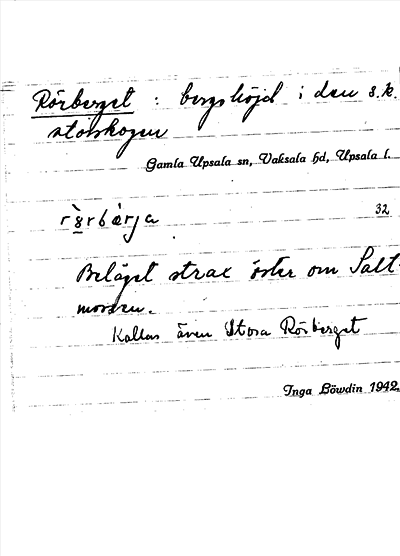 Rörberget : bergshöjd i den s.k.
storskogen
Gamla Upsala sn, Vaksala hd, Upsala l.
32
Beläget strax öster om Salt-
mossen.
Kallas även Stora Rörberget
Inga Löwdin 1942.